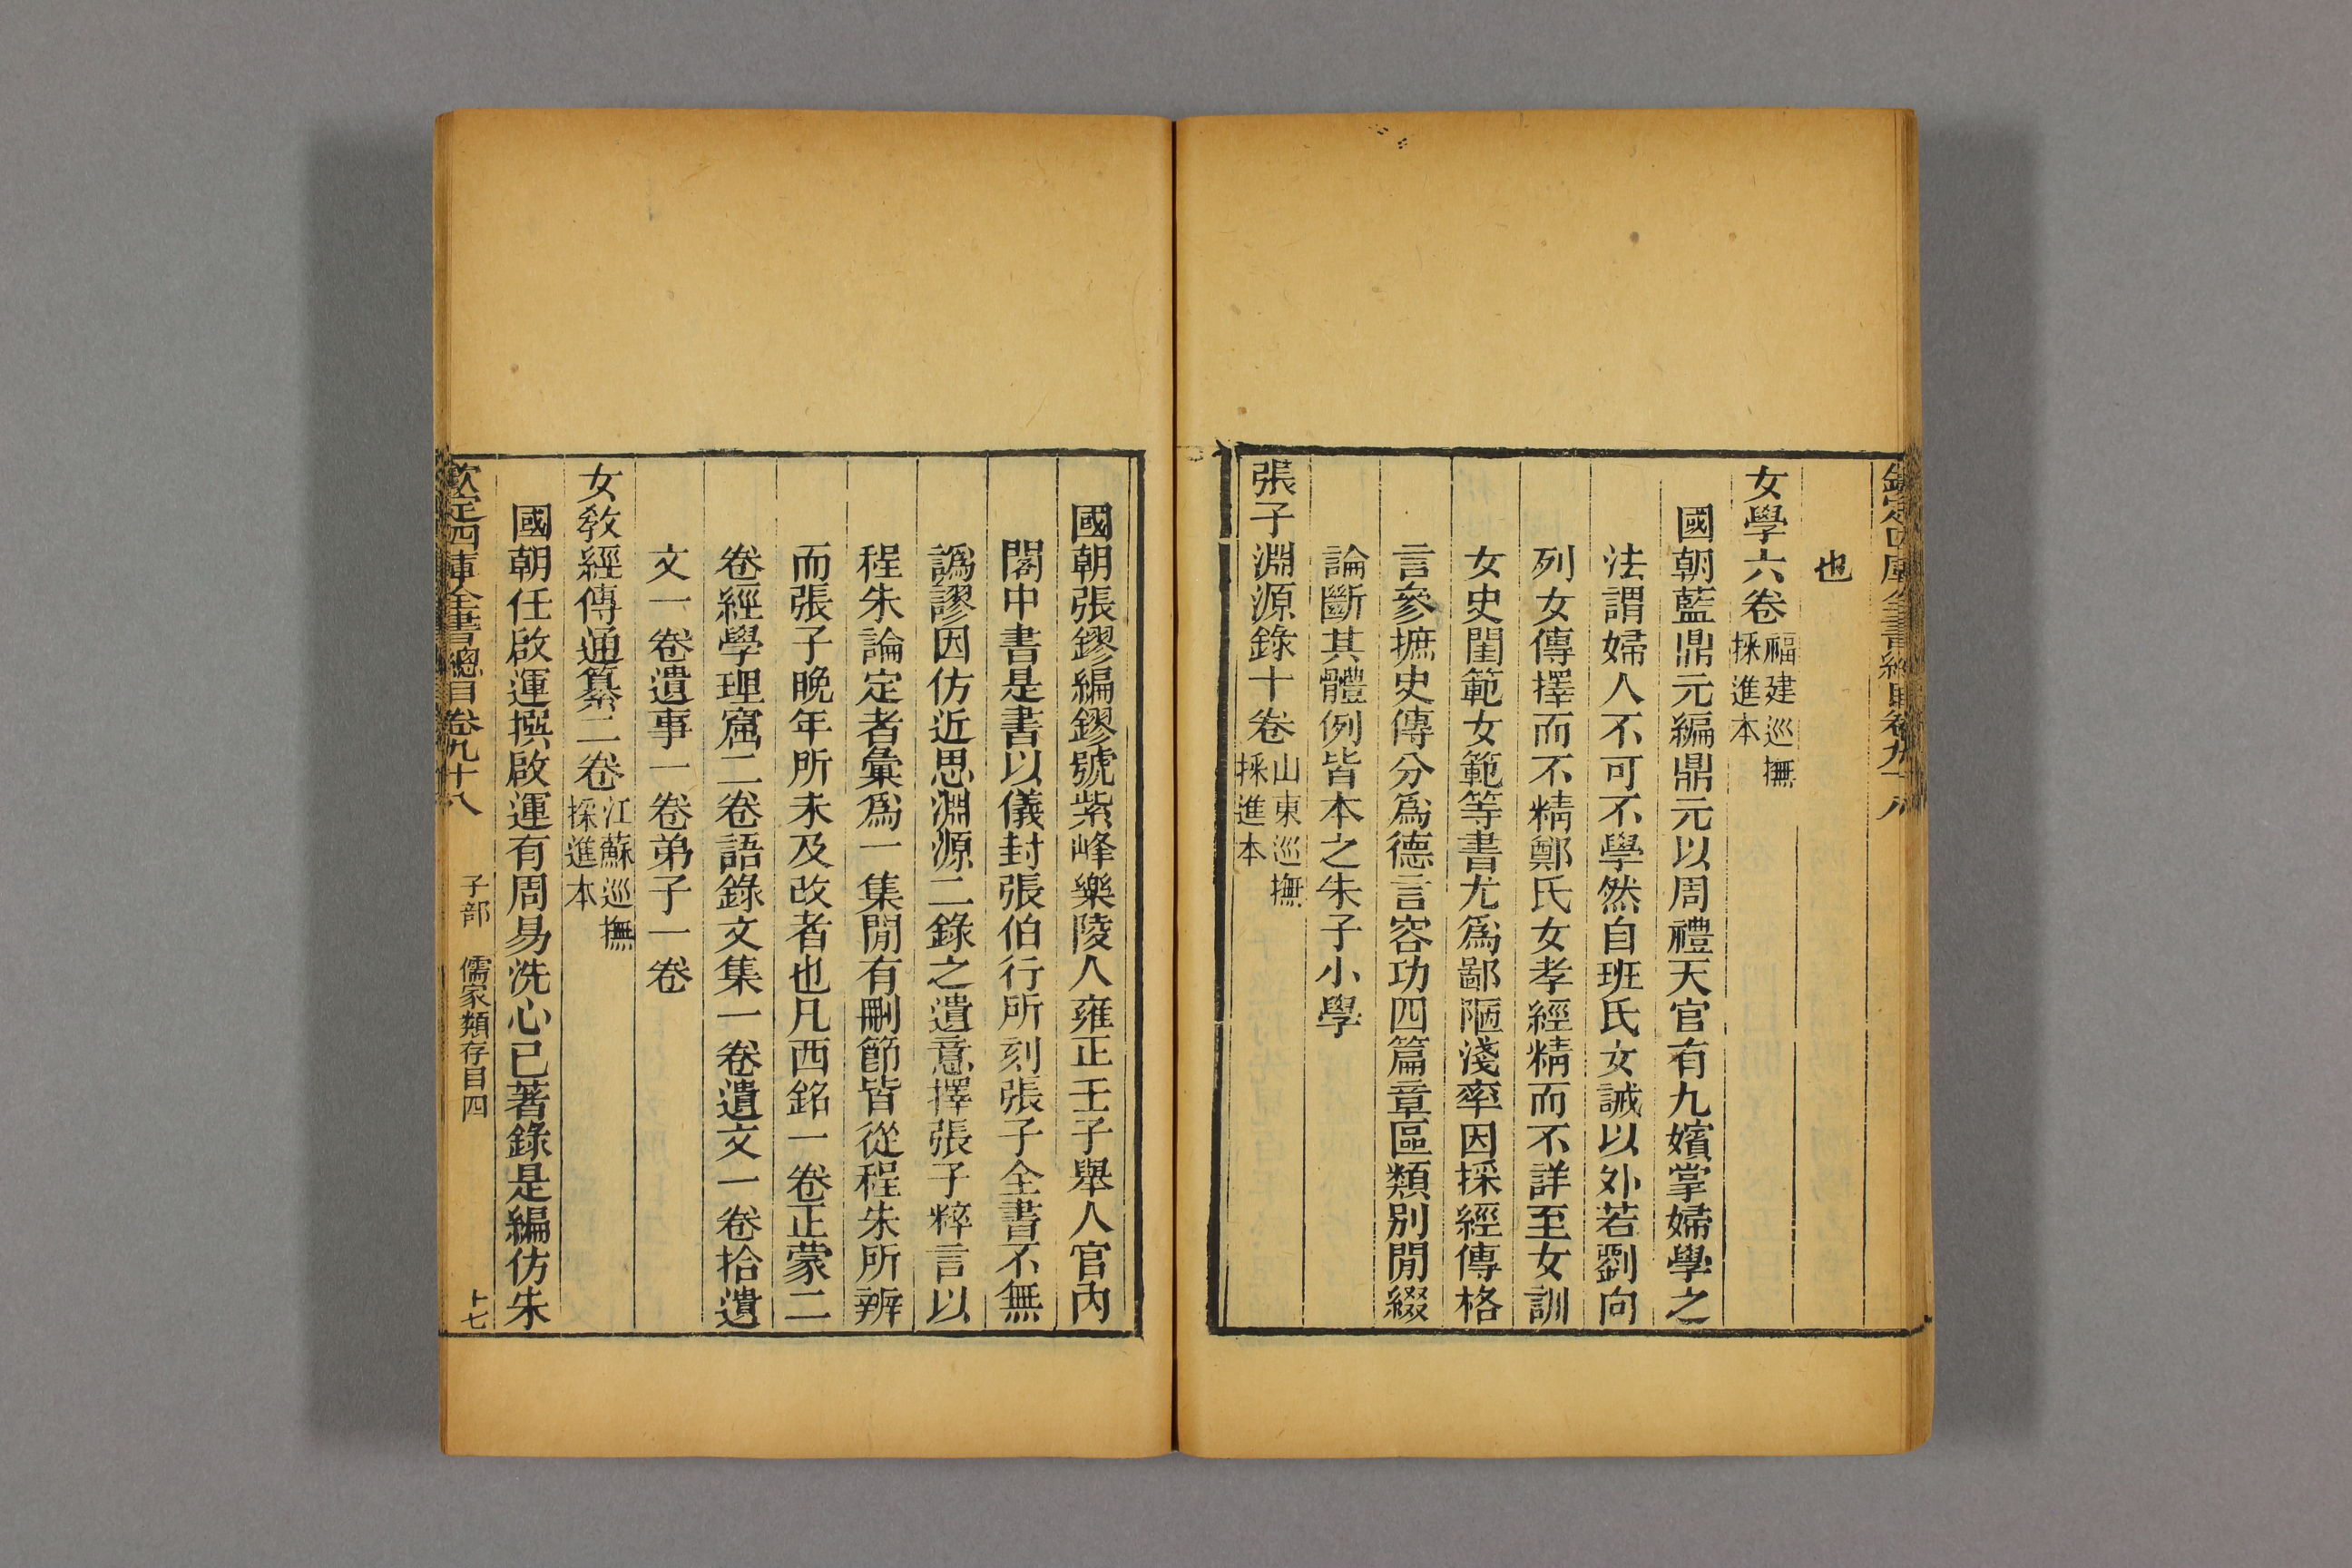 欽定四庫全書總目卷九十八
也
女學六卷福建巡撫採進本
國朝藍鼎元編鼎元以周禮天官有九嬪掌婦學之
法謂婦人不可不學然自班氏女誡以外若劉向
列女傳擇而不精鄭氏女孝經精而不詳至女訓
女史閨範女範等書尤爲鄙陋淺率因採經傳格
言參摭史傳分爲德言容功四篇章區類別閒綴
論斷其體例皆本之朱子小學
張子淵源錄十卷山東巡撫採進本
國朝張鏐編鏐號紫峰樂陵人雍正壬子舉人官內
閣中書是書以儀封張伯行所刻張子全書不無
譌謬因仿近思淵源二錄之遺意擇張子粹言以
程朱論定者彙爲一集閒有刪節皆從程朱所辨
而張子晚年所未及改者也凡西銘一卷正蒙二
卷經學理窟二卷語錄文集一卷遺文一卷拾遺
文一卷遺事一卷弟子一卷
女敎經傳通纂二卷江蘇巡撫採進本
國朝任啟運撰啟運有周易洗心已著錄是編仿朱
欽定四庫全書總目卷九十八 子部 儒家類存目四 十七